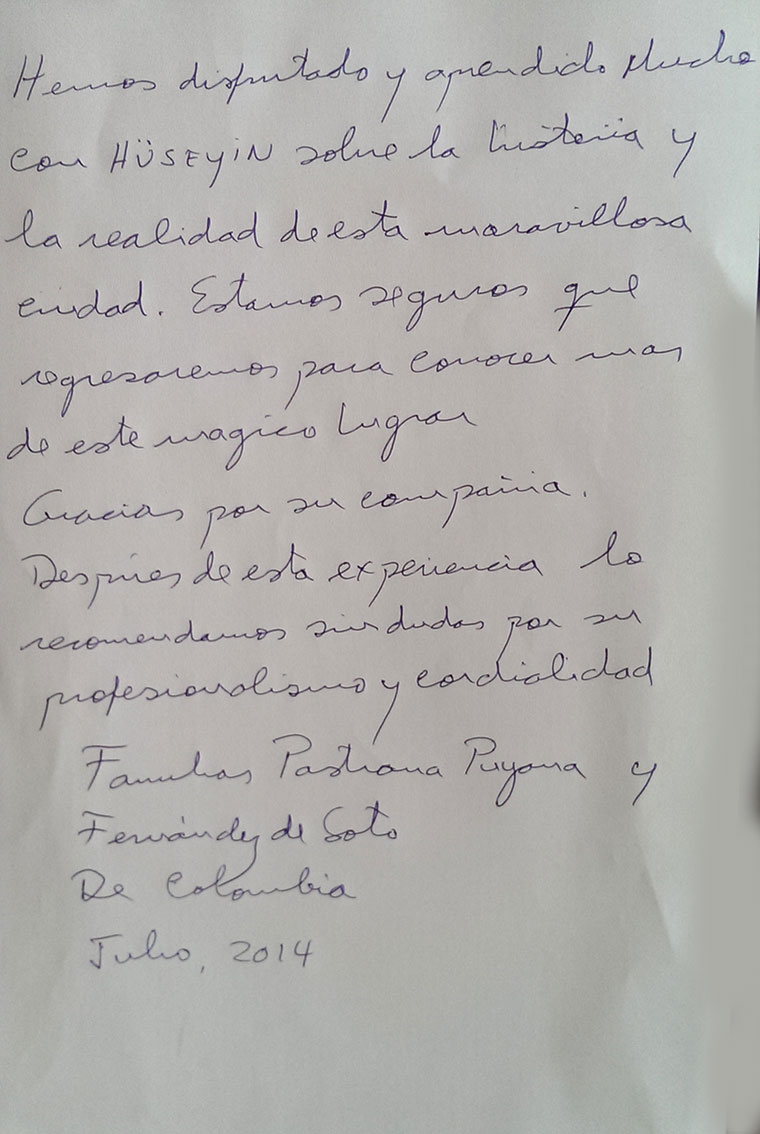 Hemos disfrutado y aprendido Mucho
con HÜSEYiN sobre la historia y
la realidad de esta maravillosa
ciudad. Estamos seguros que
regresaremos para conocer mas
de este magico lugar
Gracias por su compañia.
Despues de esta experiencia lo
recomendamos sin dudas por su
profesionalismo y cordialidad
Familias Pastrana Puyana y
Fernández de Soto
De Colombia
Julio, 2014